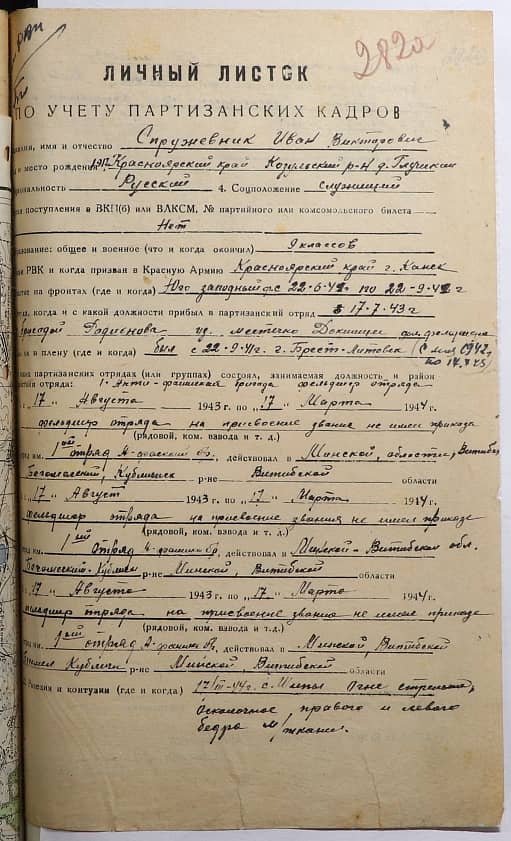 282а
ЛИЧНЫЙ ЛИСТОК
ПО УЧЕТУ ПАРТИЗАНСКИХ КАДРОВ
имя и отчество Спружевник Иван Викторович
и место рождения 1917 Красноярский край Козульский р-н д. Глуткий
Русский 4. Соцположение служищий
поступления в ВКП(б) или ВЛКСМ, № партийного или комсомольского билета
Нет
общее и военное (что и когда окончил) 9 классов
РВК и когда призван в Красную Армию Красноярский край г. Канск
на фронтах (где и когда) Юго западный ф. с 22-6-41 по 22-9-41 г
когда и с какой должности прибыл в партизанский отряд 17-7-43 г
бригадой Родионова из местечко Докшицы
в плену (где и когда) был с 22-9-41 г. г. Брест-Литовск
партизанских отрядах (или группах) состоял, занимаемая должность и район
отряда: 1. Анти-фашиская бригада фельдшер отряда
„17" Августа 1943 г. по „17" Марта 1944 г.
фельдшер отряда на присвоение звания не имел приказа
(рядовой, ком. взвода и т. д.)
1ый отряд А-фашиский бр., действовал в Минской, области, Витибс
Бегомлский, Кубличск р-не Витибской области
„17" Август 1943 г. по „17" Марта 1944 г.
фельдшер отряда на присвоения звания не имел приказа
(рядовой, ком. взвода и т.д.)
им. 1ый отряд А-фашис бр., действовал в Минской-Витибской обл.
р-не Минской, Витибской области
„17" Августа 1943 г. по „17" Марта 1944 г.
фельдшер отряда на присвоение звание не имел приказа
(рядовой, ком. взвода и т.д.)
им. 1ый отряд А-фашис бр., действовал в Минской, Витибской
Кубличи р-не Минской, Витибской области
Ранения и контузии (где и когда) 17/III-44 г. с.
осколочное правого и левого
бедра м/ткани.